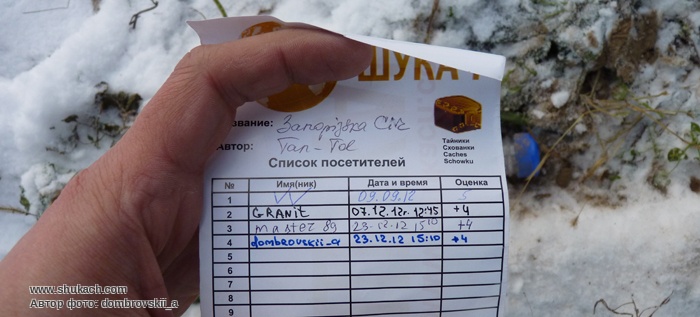 ШУКА
Название: Запорізька Січ
Автор: Tan-Tol
Тайники
Схованки
Caches
Schowku
Список посетителей
№ Имя(ник) Дата и время Оценка
1 09.09.12 5
2 GRANit 07.12.12г. 12:45 +4
3 master 89 23-12.12 15 10 +4
4 dombrovskii_a 23.12.12 15:10 +4
5
6
7
8
9
www.shukach.com
Автор фото: dombrovskii_a